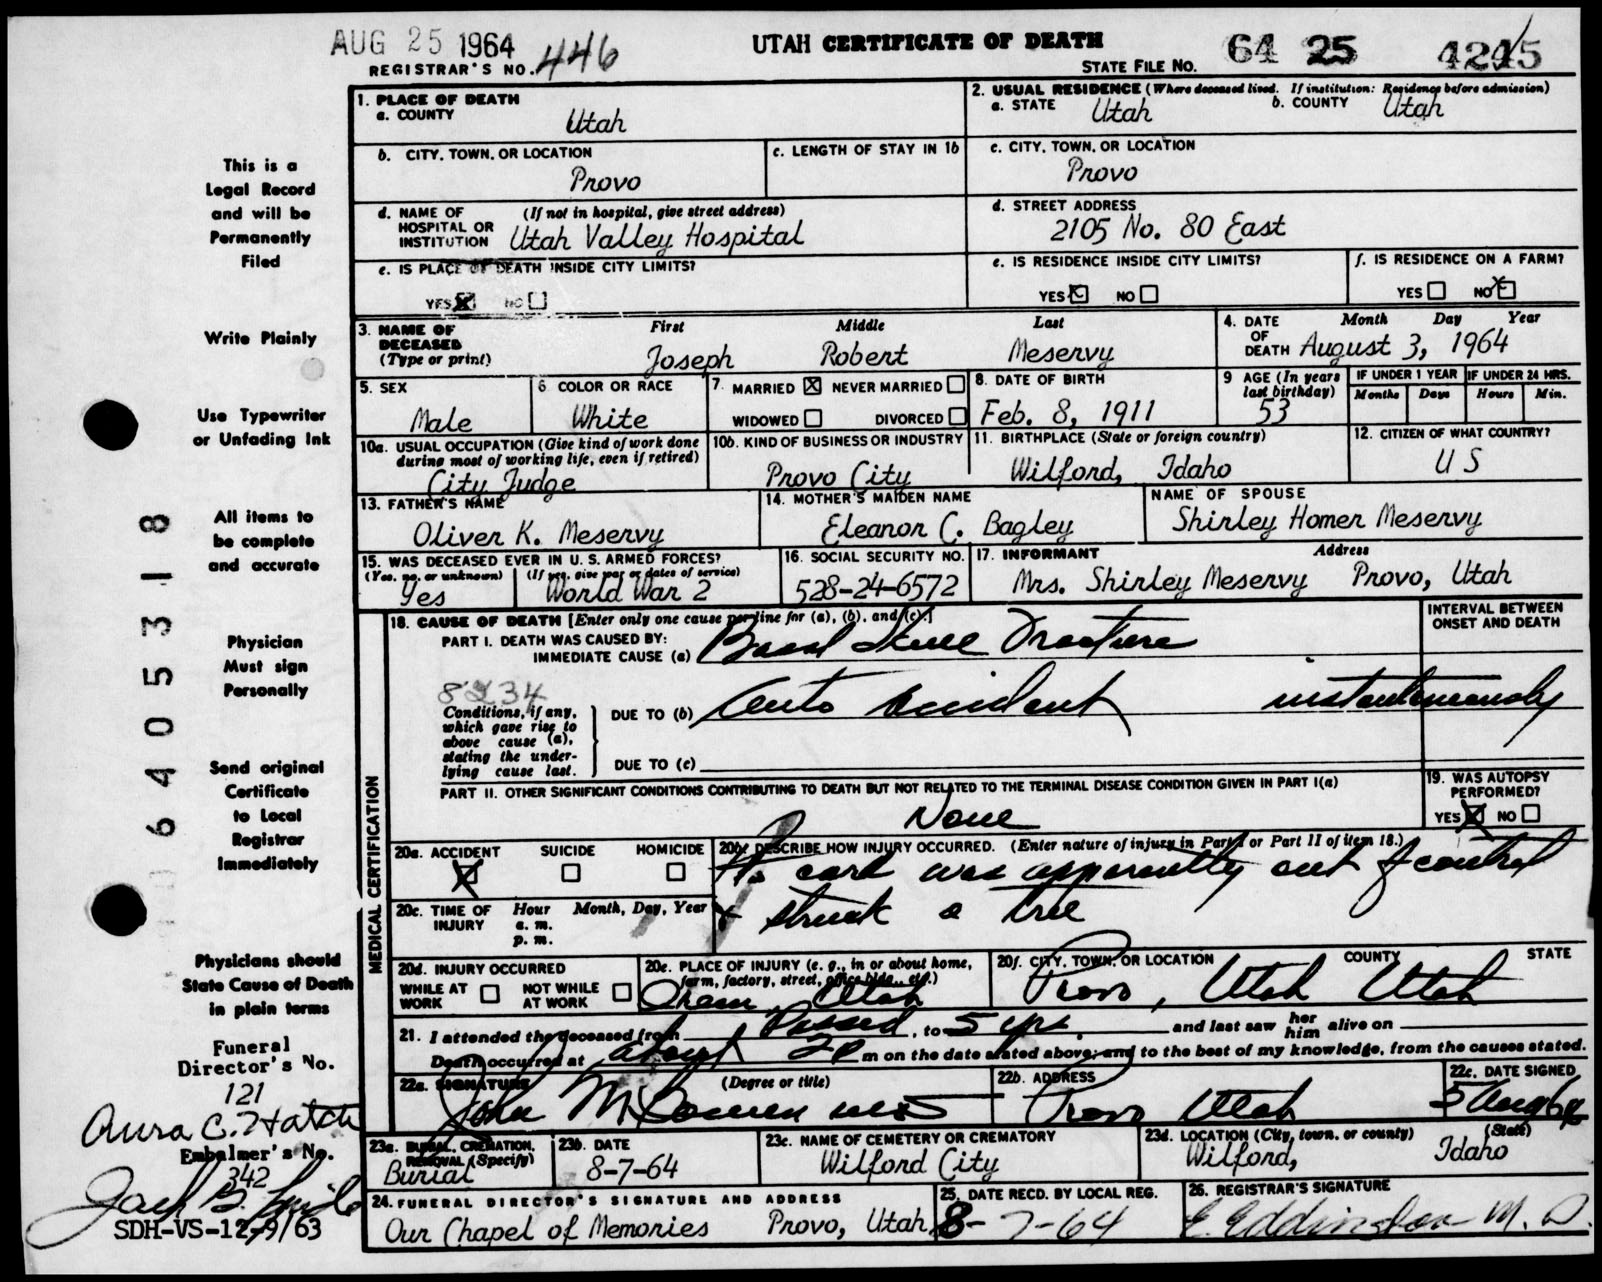 AUG 25 1964
REGISTRAR'S NO. 446
UTAH CERTIFICATE OF DEATH
STATE FILE NO. 64 25 4245
1. PLACE OF DEATH
a. COUNTY
Utah
2. USUAL RESIDENCE (Where deceased lived. If institution: Residence before admission)
a. STATE Utah b. COUNTY Utah
b. CITY, TOWN, OR LOCATION
Provo
c. LENGTH OF STAY IN 1b
c. CITY, TOWN, OR LOCATION
Provo
d. NAME OF (If not in hospital, give street address)
HOSPITAL OR
INSTITUTION Utah Valley Hospital
d. STREET ADDRESS
2105 No. 80 East
e. IS PLACE OF DEATH INSIDE CITY LIMITS?
YES X NO
e. IS RESIDENCE INSIDE CITY LIMITS?
YES X NO
f. IS RESIDENCE ON A FARM?
YES NO X
3. NAME OF First Middle Last
DECEASED
(Type or print) Joseph Robert Meservy
4. DATE Month Day Year
OF
DEATH August 3, 1964
5. SEX
Male
6. COLOR OR RACE
White
7. MARRIED X NEVER MARRIED
WIDOWED DIVORCED
8. DATE OF BIRTH
Feb. 8, 1911
9 AGE (In years
last birthday)
53
IF UNDER 1 YEAR
Months Days
IF UNDER 24 HRS.
Hours Min.
10a. USUAL OCCUPATION (Give kind of work done
during most of working life, even if retired)
City Judge
10b. KIND OF BUSINESS OR INDUSTRY
Provo City
11. BIRTHPLACE (State or foreign country)
Wilford, Idaho
12. CITIZEN OF WHAT COUNTRY?
US
13. FATHER'S NAME
Oliver K. Meservy
14. MOTHER'S MAIDEN NAME
Eleanor C. Bagley
NAME OF SPOUSE
Shirley Homer Meservy
15. WAS DECEASED EVER IN U. S. ARMED FORCES?
(Yes, no, or unknown) (If yes, give war or dates of service)
Yes World War 2
16. SOCIAL SECURITY NO.
528-24-6572
17. INFORMANT Address
Mrs. Shirley Meservy Provo, Utah
18. CAUSE OF DEATH [Enter only one cause per line for (a), (b), and (c).]
INTERVAL BETWEEN
ONSET AND DEATH
PART I. DEATH WAS CAUSED BY:
IMMEDIATE CAUSE (a) Basal Skull Fracture
8234
Conditions, if any,
which gave rise to
above cause (a),
stating the under-
lying cause last.
DUE TO (b) Auto Accident instantaneously
DUE TO (c)
PART II. OTHER SIGNIFICANT CONDITIONS CONTRIBUTING TO DEATH BUT NOT RELATED TO THE TERMINAL DISEASE CONDITION GIVEN IN PART I(a)
None
19. WAS AUTOPSY
PERFORMED?
YES X NO
MEDICAL CERTIFICATION
20a. ACCIDENT SUICIDE HOMICIDE
X
20b. DESCRIBE HOW INJURY OCCURRED. (Enter nature of injury in Part I or Part II of item 18.)
card was apparently out of control
& struck a tree
20c. TIME OF Hour Month, Day, Year
INJURY a. m.
p. m.
20d. INJURY OCCURRED
WHILE AT WORK NOT WHILE AT WORK
20e. PLACE OF INJURY (e. g., in or about home,
farm, factory, street, office bldg., etc.)
Orem, Utah
20f. CITY, TOWN, OR LOCATION COUNTY STATE
Provo, Utah Utah
21. I attended the deceased from Passed, to 5 yrs. and last saw her him alive on
Death occurred at about m on the date stated above; and to the best of my knowledge, from the causes stated.
22a. SIGNATURE (Degree or title)
John M Bowen MD
22b. ADDRESS
Provo Utah
22c. DATE SIGNED
5 Aug 64
23a. BURIAL, CREMATION,
REMOVAL (Specify)
Burial
23b. DATE
8-7-64
23c. NAME OF CEMETERY OR CREMATORY
Wilford City
23d. LOCATION (City, town, or county) (State)
Wilford, Idaho
24. FUNERAL DIRECTOR'S SIGNATURE AND ADDRESS
Our Chapel of Memories Provo, Utah
25. DATE RECD. BY LOCAL REG.
8-7-64
26. REGISTRAR'S SIGNATURE
E. Eddington M. D.
This is a
Legal Record
and will be
Permanently
Filed
Write Plainly
Use Typewriter
or Unfading Ink
All items to
be complete
and accurate
Physician
Must sign
Personally
Send original
Certificate
to Local
Registrar
Immediately
Physicians should
State Cause of Death
in plain terms
Funeral
Director's No.
121
Aura C. Hatch
Embalmer's No.
342
Jack
SDH-VS-12-9/63
64053 18